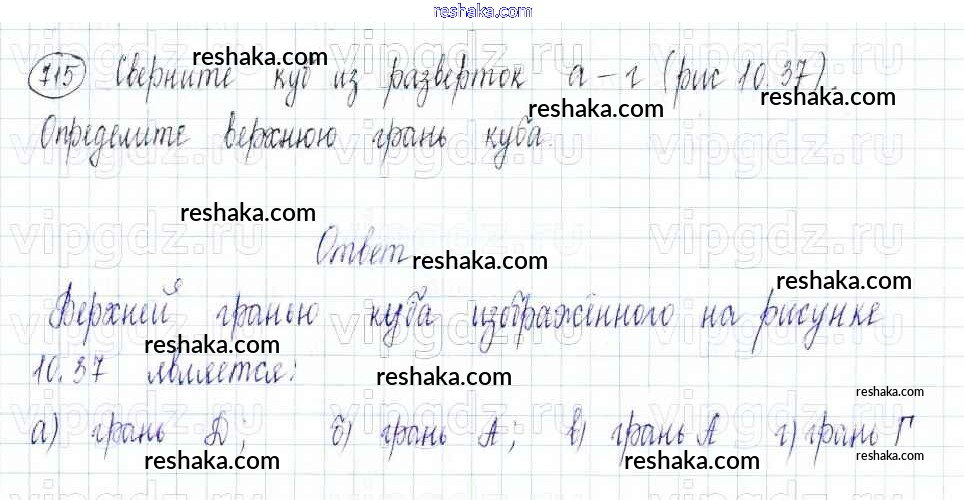 reshaka.com
715 Сверните куб из разверток а-г (рис 10.37).
reshaka.com
reshaka.com
reshaka.com
Определите верхнюю грань куба.
reshaka.com
vipgdz.ru vipgdz.ru vipgdz.ru
reshaka.com
vipgdz.ru vipgdz.ru vipgdz.ru
Ответ
reshaka.com
reshaka.com
Верхней гранью куба изображённого на рисунке
reshaka.com
10.37 является:
reshaka.com
reshaka.com
а) грань Д; б) грань А; в) грань А г) грань Г
vipgdz.ru vipgdz.ru vipgdz.ru
reshaka.com
reshaka.com
reshaka.com